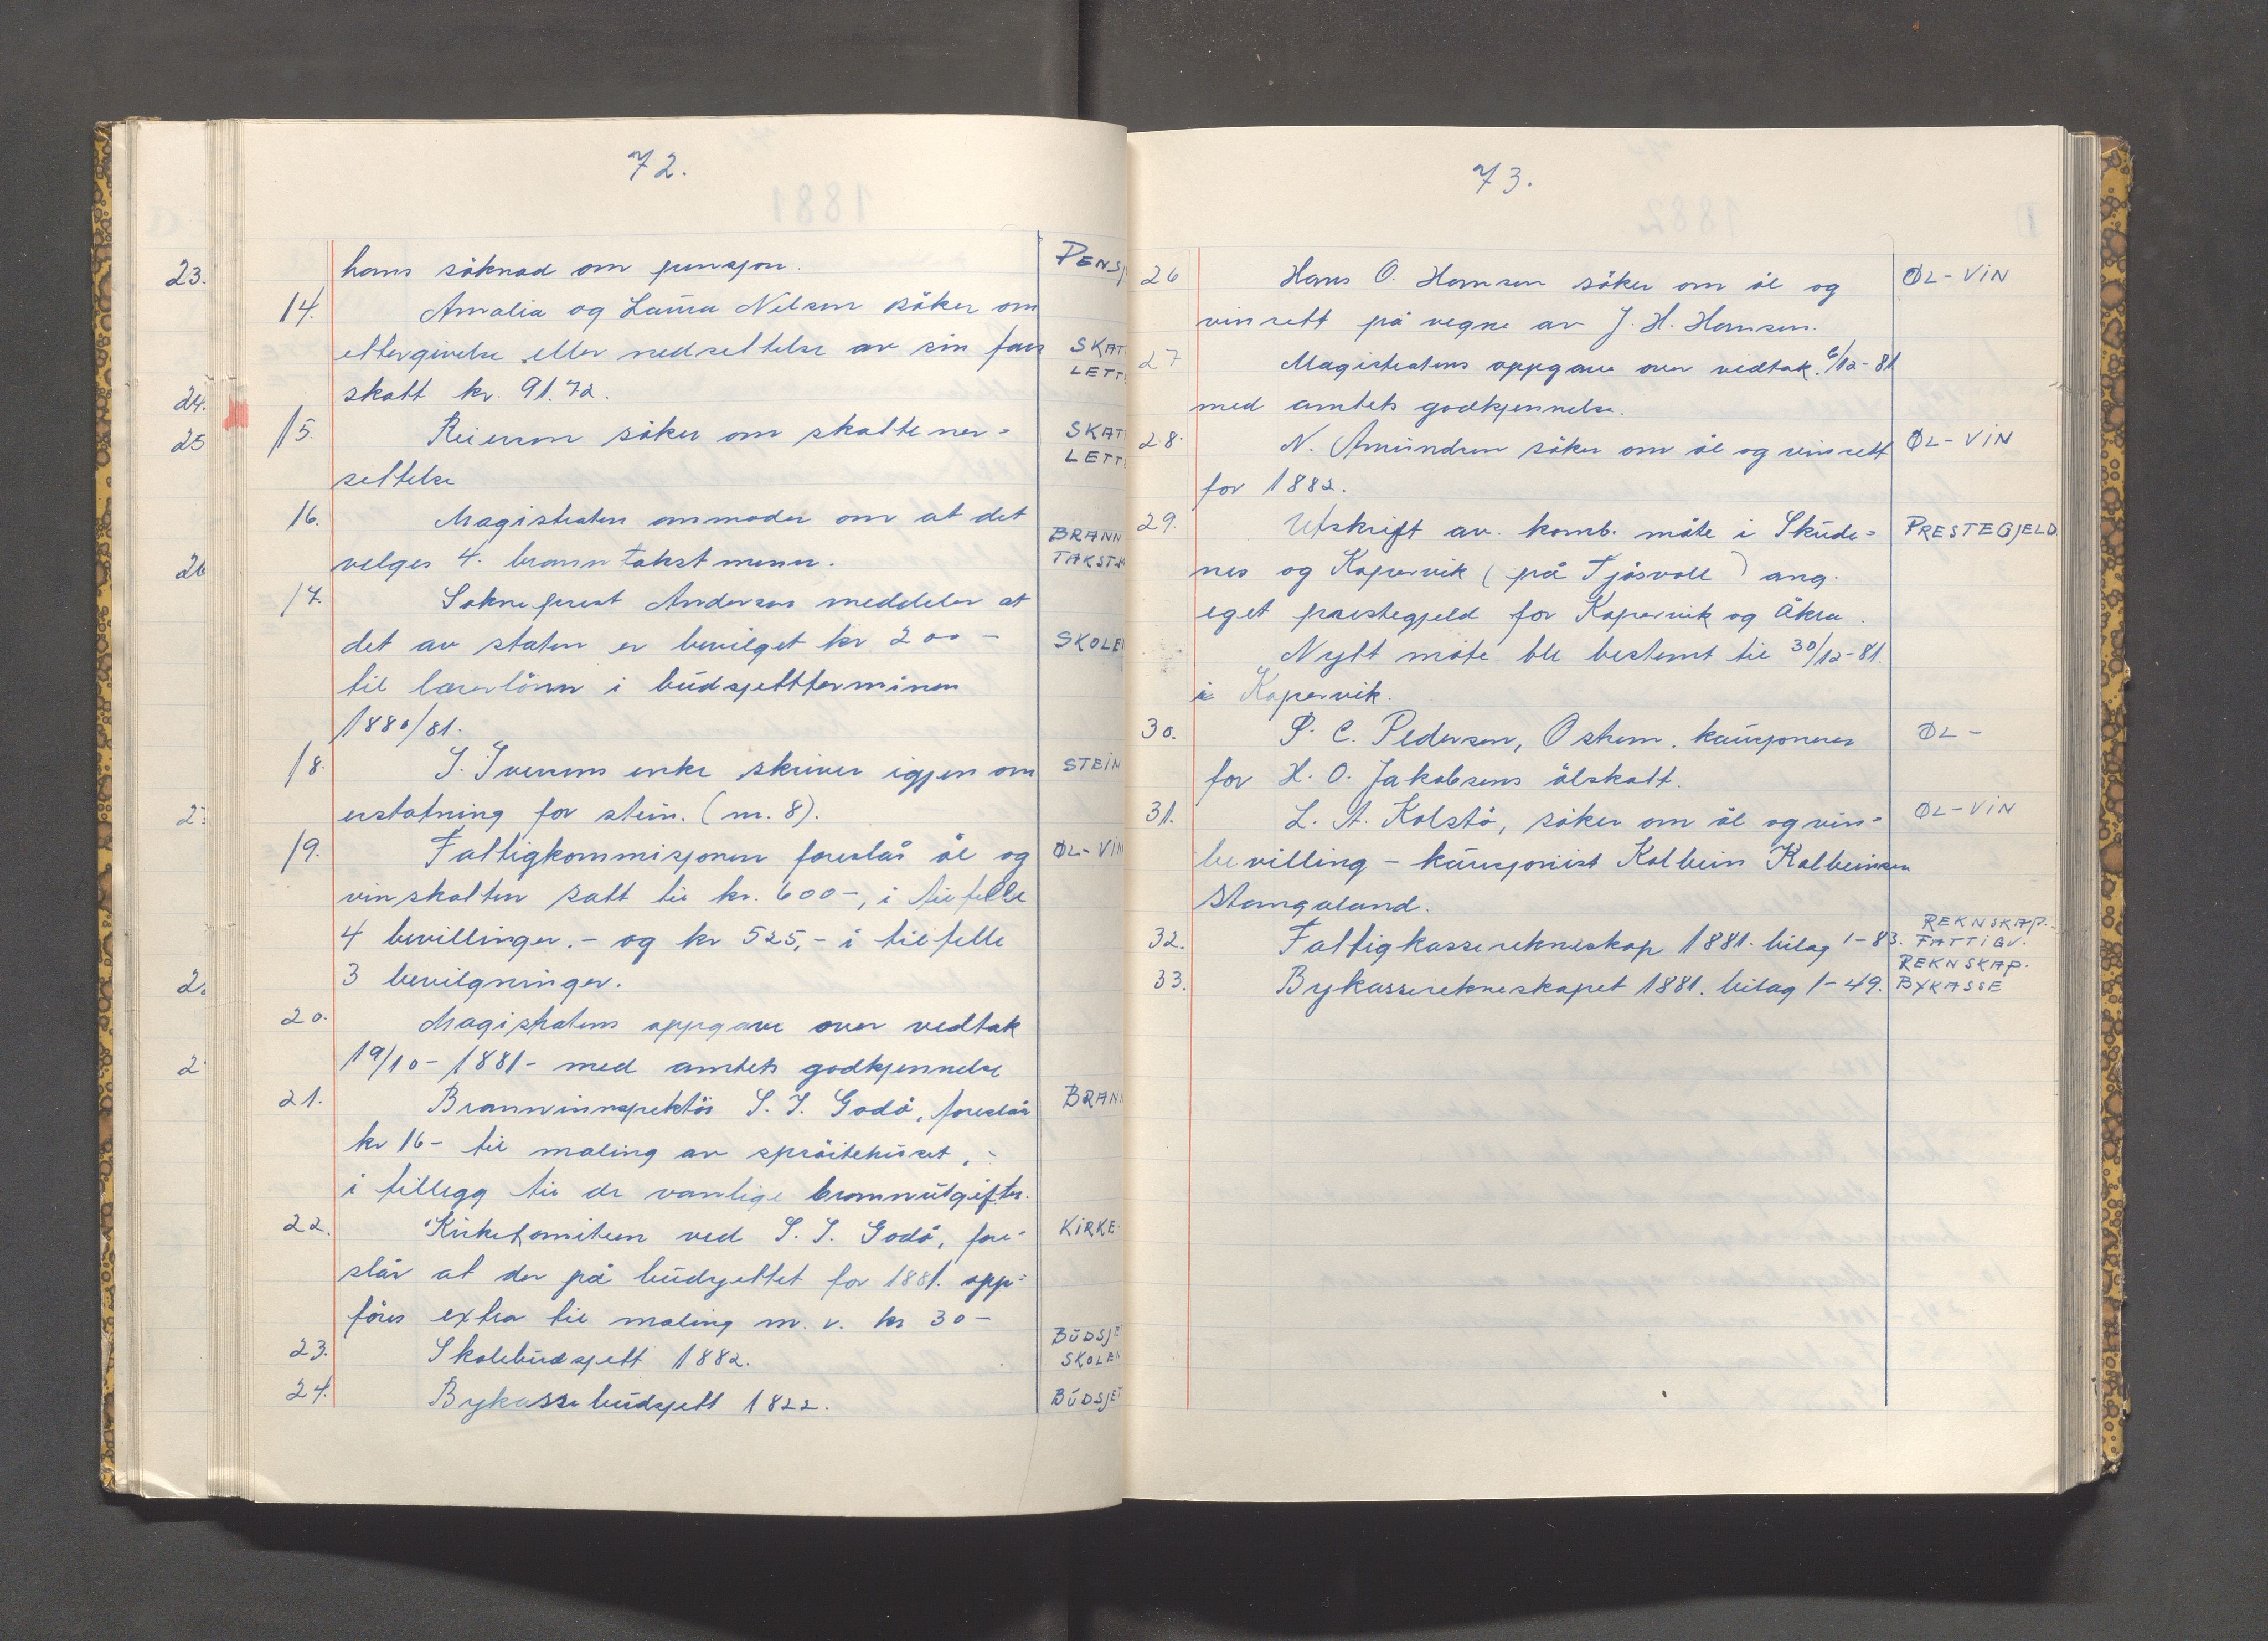 72.
hans söknad om pensjon. PENSJ
14. Amalia og Laura Nilsen söker om
ettergivelse eller nedsettelse av sin fars SKAT
skatt kr. 91.72. LETT
15. Reierson söker om skattener= SKAT
settelse LETT
16. Magistraten anmoder om at det
velges 4. branntakstmenn. BRANN TAKSTM
17. Sokneprest Andersen meddeler at
det av staten er bevilget kr 200- SKOLE
til lærerlönn i budsjettterminen
1880/81.
18. I. Iversens enke skriver igjen om STEIN
erstatning for stein. (nr. 8).
19. Fattigkommisjonen foreslår öl og ØL-VIN
vinskatten satt til kr. 600-, i tilfelle
4 bevillinger.- og kr 525,- i tilfelle
3 bevilgninger.
20. Magistratens oppgave over vedtak
19/10-1881- med amtets godkjennelse
21. Branninnspektör S. I. Godö, foreslår BRANN
kr 16- til maling av spröitehuset,-
i tillegg til de vanlige brannutgifter.
22. Kirkekomiteen ved S. I. Godö, fore- KIRKE
slår at der på budsjettet for 1881. opp=
föres extra til maling m. v. kr 30-
23. Skolebudsjett 1882. BUDSJE SKOLEN
24. Bykassebudsjett 1822. BUDSJET
23.
24.
25
26
73.
26 Hans O. Hansen söker om öl og ØL-VIN
vinrett på vegne av J. H. Hansen.
27 Magistratens oppgave over vedtak. 6/12-81
med amtets godkjennelse.
28. N. Amundsen söker om öl og vinrett ØL-VIN
for 1882.
29. Utskrift av komb. möte i Skude= PRESTEGJELD
nes og Kopervik (på Tjösvoll) ang.
eget prestegjeld for Kopervik og Åkra.
Nytt möte ble bestemt til 30/12-81.
i Kopervik.
30. P. C. Pedersen, Östrem. kausjonerer ØL-
for H. O. Jakobsens ölskatt.
31. L. A. Kolstö, söker om öl og vin= ØL-VIN
bevilling - kausjonist Kolbein Kolbeinsen
Stangaland.
32. Fattigkasserekneskap 1881. bilag 1-83. REKNSKAP. FATTIGV.
33. Bykasserekneskapet 1881. bilag 1-49. REKNSKAP. BYKASSE